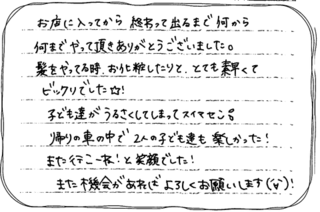 お店に入ってから 終わって出るまで 何から
何までやって頂きありがとうございました。
髪をやってる時、お化粧したりと、とても素早くて
ビックリでした☆!
子ども達がうるさくしてしまってスイマセン。
帰りの車の中で 2人の子ども達も 楽しかった!
また行こーね!と笑顔でした!
また機会があればよろしくお願いします(∀)!